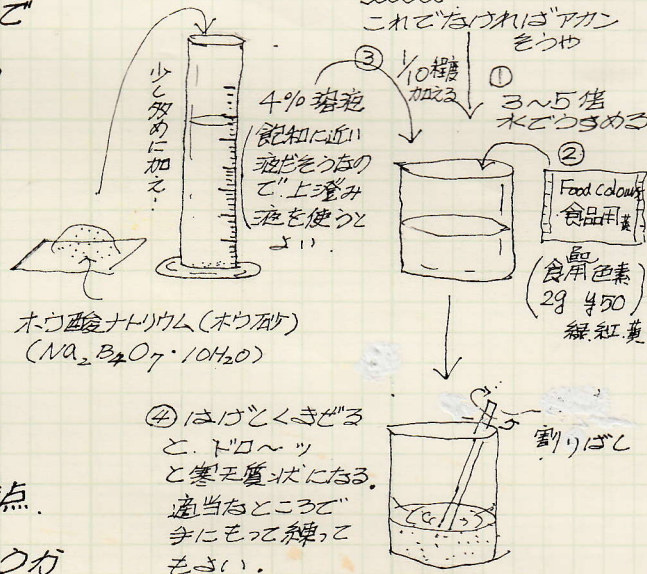 で
これでなければアカン
そうや
少し多めに加え.
③
4%溶液
飽和に近い
液だそうなの
で.上澄み
液を使うと
よい.
1/10程度
加える
①
3〜5倍
水でうすめる
②
Food Colour
食品用 黄
(食用色素
2g ¥50)
緑.紅.黄
ホウ酸ナトリウム(ホウ砂)
(Na2B4O7・10H2O)
④ はげしくまぜる
と.ドロ〜ッ
と寒天質状になる.
適当なところで
手にもって練って
もよい.
割りばし
点.